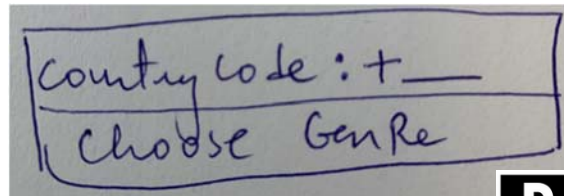 Country code : +__
Choose GenRe
D